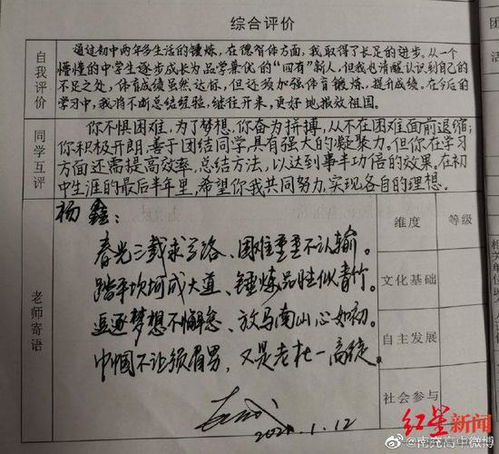 综合评价
自我评价
通过初中两年多生活的锤炼，在德智体方面，我取得了长足的进步。从一个
懵懂的中学生逐步成长为品学兼优的“四有”新人，但我也清醒认识到自己的
不足之处，体育成绩虽然达标，但还须加强体育锻炼，提升成绩。在今后的
学习中，我将不断总结经验，继往开来，更好地报效祖国。
同学互评
你不惧困难，为了梦想，你奋力拼搏，从不在困难面前退缩；
你积极开朗，善于团结同学，具有强大的凝聚力。但你在学习
方面还需提高效率，总结方法，以达到事半功倍的效果，在初
中生涯的最后半年里，希望你我共同努力，实现各自的理想。
老师寄语
杨鑫：
春光三载求学路、困难重重不认输。
踏平坎坷成大道、锤炼品性似青竹。
追逐梦想不懈怠、放马南山心如初。
巾帼不让须眉男，又是老杜一高徒。
2021.1.12
维度
等级
文化基础
自主发展
社会参与
红星新闻
@南充高中微博